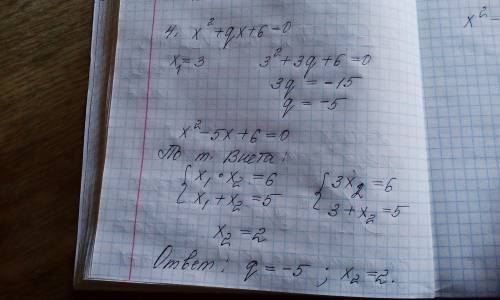 4. x² + qx + 6 = 0
x₁ = 3    3² + 3q + 6 = 0
3q = -15
q = -5
x² - 5x + 6 = 0
По т. Виета:
{ x₁ • x₂ = 6    { 3x₂ = 6
{ x₁ + x₂ = 5    { 3 + x₂ = 5
x₂ = 2
Ответ: q = -5 ; x₂ = 2.
x²